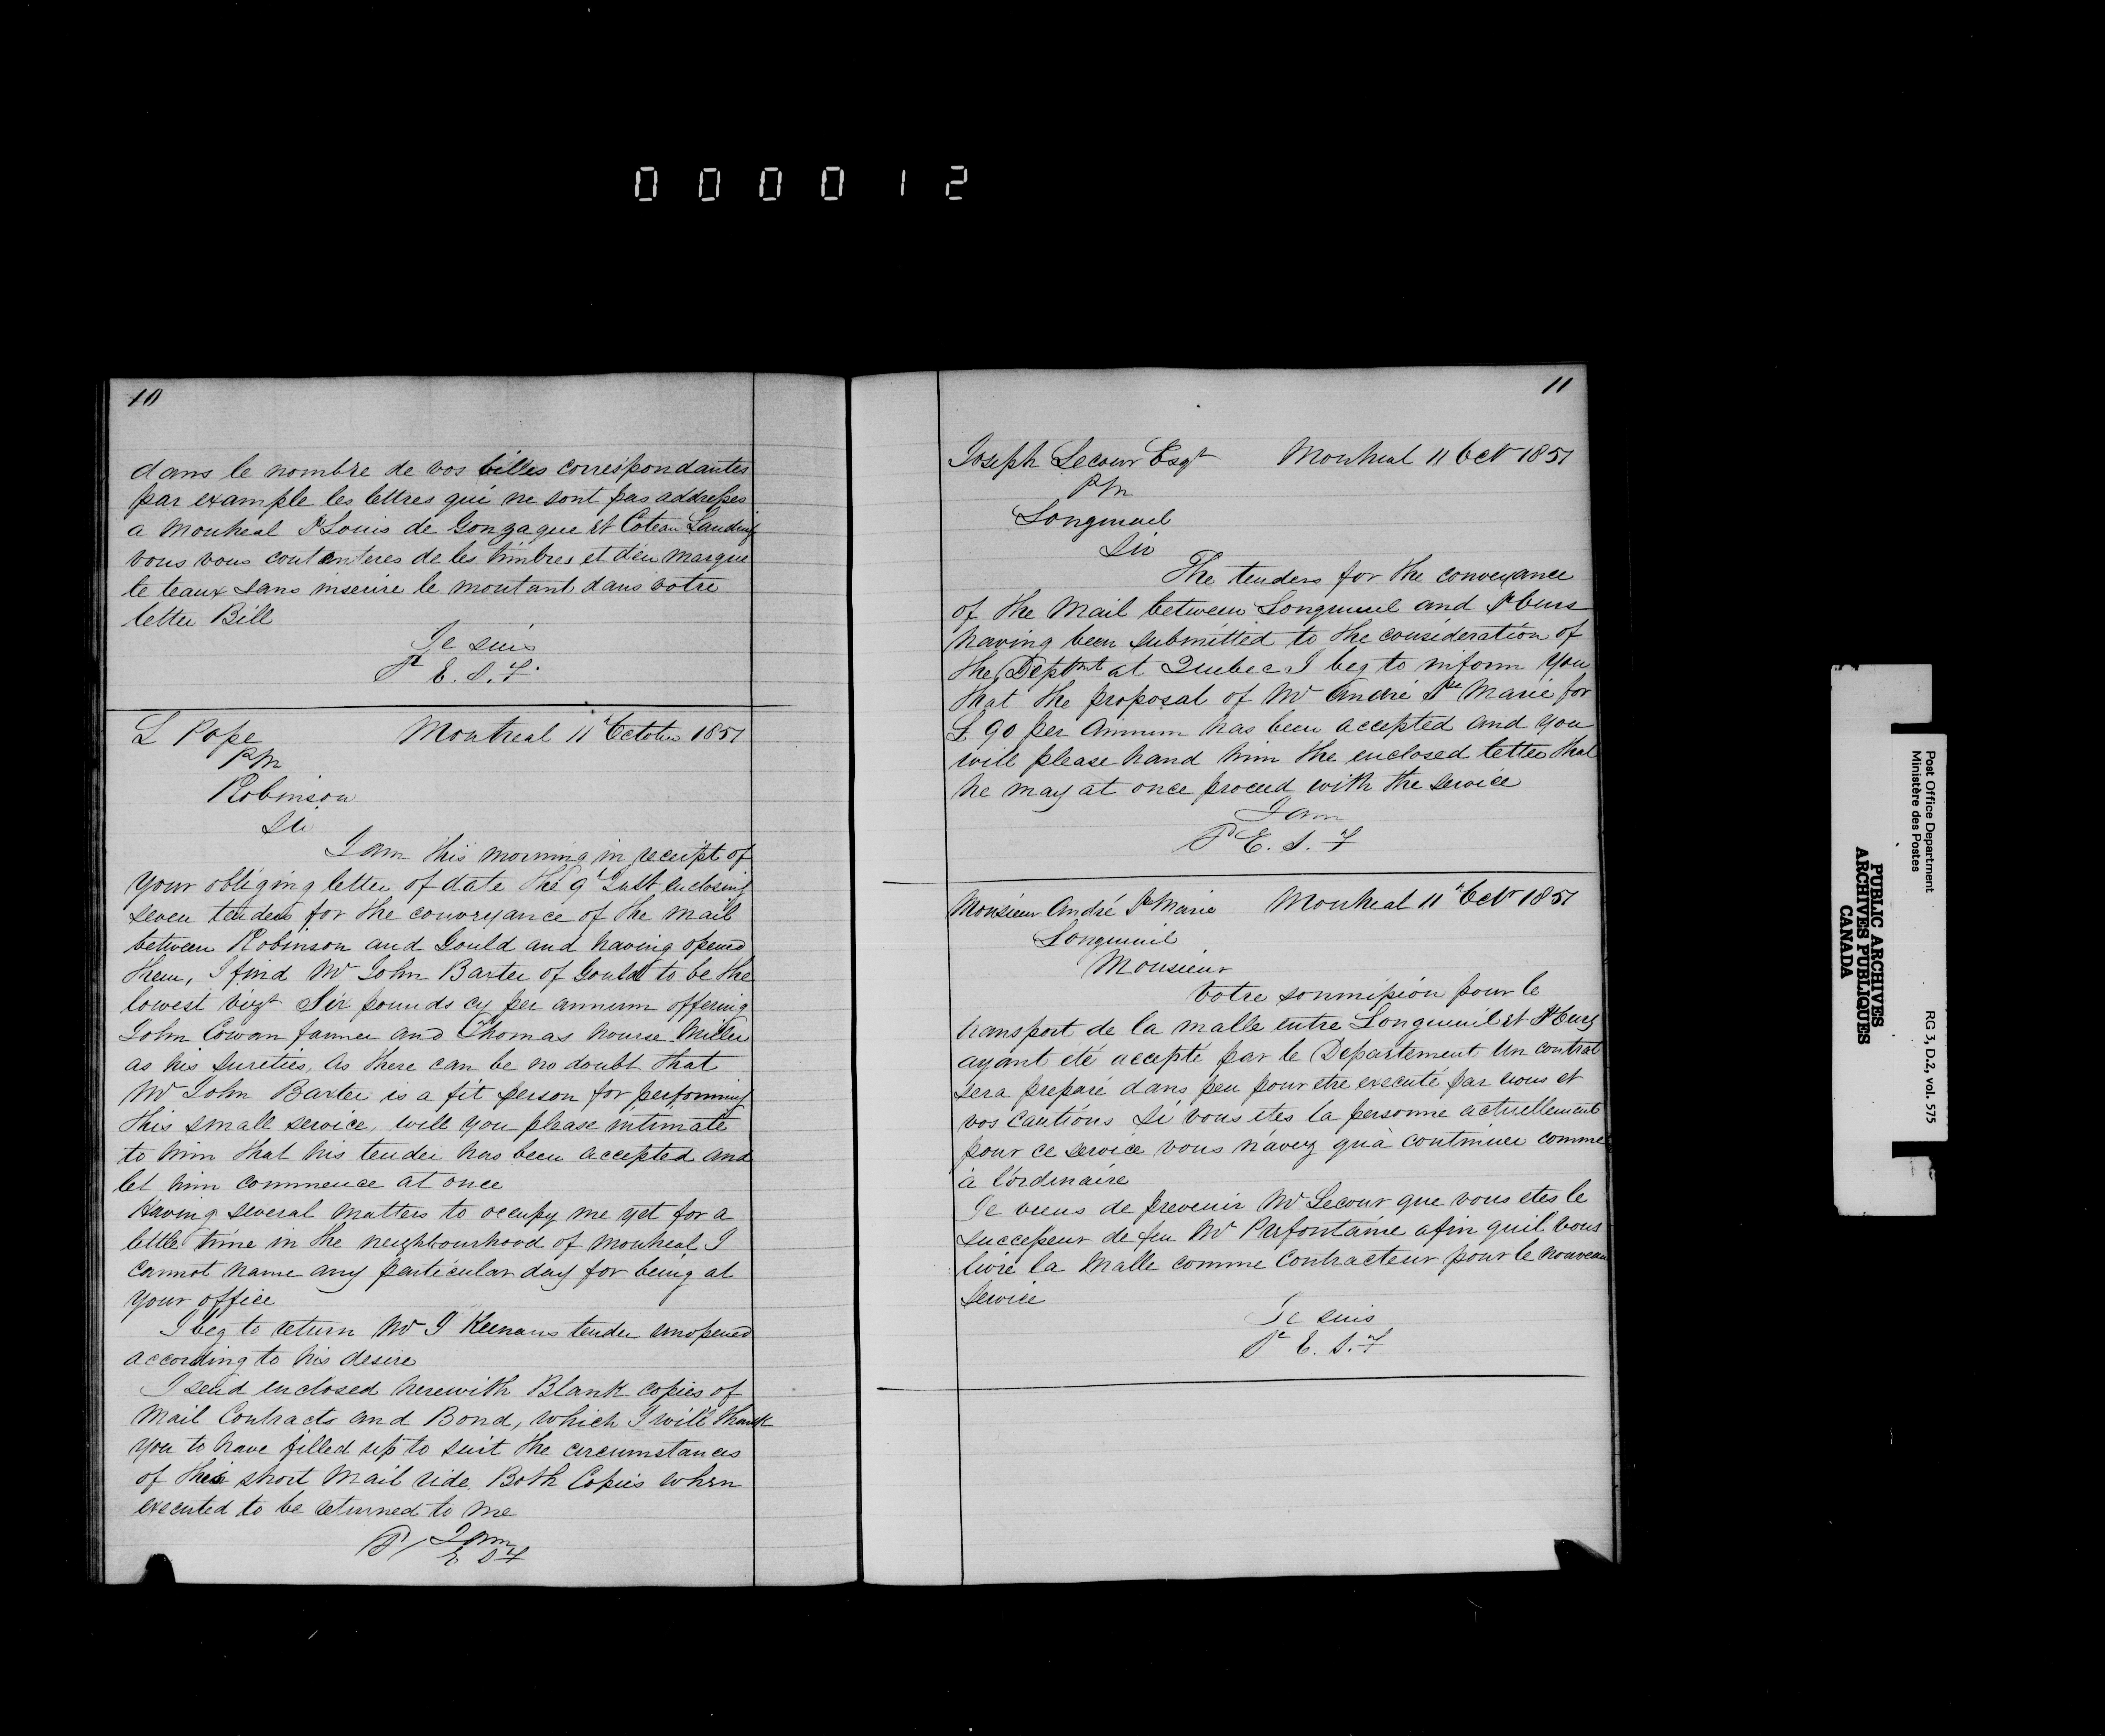 000012
10
dans le nombre de vos billes correspondantes
par example les lettres qui ne sont pas addresses
a Montreal St Louis de Gonzague et Coteau Landing
vous vous contenteres de les timbres et d'en marque
le teaux sans inserire le montant dans votre
letter Bill
Je suis
Pr E. S. F.
L Pope Montreal 11th October 1851
PM
Robinson
Sir
I am this morning in receipt of
your obliging letter of date the 9th Inst enclosing
seven tenders for the conveyance of the mail
between Robinson and Gould and having opened
them, I find Mr John Barter of Gould to be the
lowest vizt Six pounds cy per annum offering
John Cowan farmer and Thomas nourse Miller
as his sureties, as there can be no doubt that
Mr John Barter is a fit person for performing
this small service, will you please intimate
to him that his tender has been accepted and
let him commence at once
Having several matters to occupy me yet for a
little time in the neighbourhood of Montreal I
cannot name any particular day for being at
your office
I beg to return Mr J Keenans tender unopened
according to his desire
I send enclosed herewith Blank copies of
Mail Contracts and Bond, which I will thank
you to have filled up to suit the circumstances
of this short Mail ride. Both Copies when
executed to be returned to me
I am
Pr E S F
11
Joseph Lecour Esqr Montreal 11 Octr 1851
PM
Longueuil
Sir
The tenders for the conveyance
of the Mail between Longueuil and St
having been submitted to the consideration of
the Deptmt at Quebec I beg to inform you
that the proposal of Mr André Ste Marie for
£ 90 per Annum has been accepted and you
will please hand him the enclosed letter that
he may at once proceed with the service
I am
Pr E. S. F
Monsieur André Ste Marie Montreal 11th Octr 1851
Longueuil
Monsieur
Votre soumission pour le
transport de la malle entre Longueuil et St
ayant été accepté par le Departement Un contrat
sera preparé dans peu pour etre executé par vous et
vos cautions Si vous etes la personne actuellement
pour ce service vous n'avez qu'à continuer comme
à l'ordinaire
Je viens de prevenir Mr Lecour que vous etes le
successeur de feu Mr Prefontaine afin quil vous
livre la Malle comme Contracteur pour le nouveau
Service
Je suis
Pr E. S. F
Post Office Department
Ministère des Postes
RG 3, D.2, vol. 575
PUBLIC ARCHIVES
ARCHIVES PUBLIQUES
CANADA